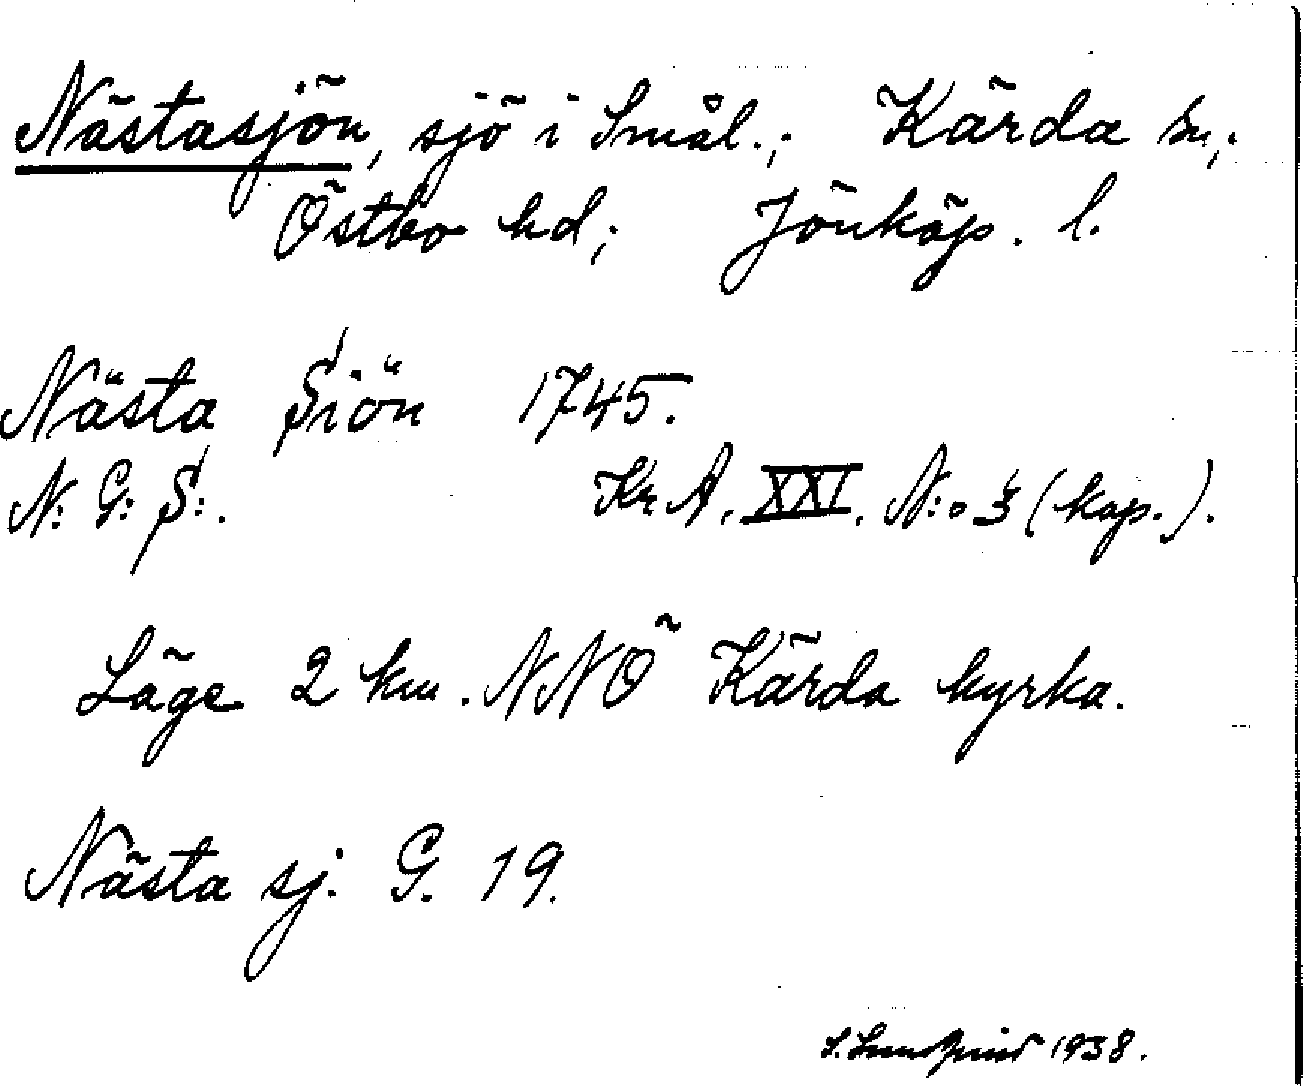 Nästasjön, sjö i Smål.; Kärda sn,;
Östbo hd; Jönköp. l.
Nästa Siön 1745.
N: G: S:. Kr A. XXI. N:o 3 (kop.).
Läge 2 km. NNÖ Kärda kyrka.
Nästa sj. G. 19.
S. 1938.